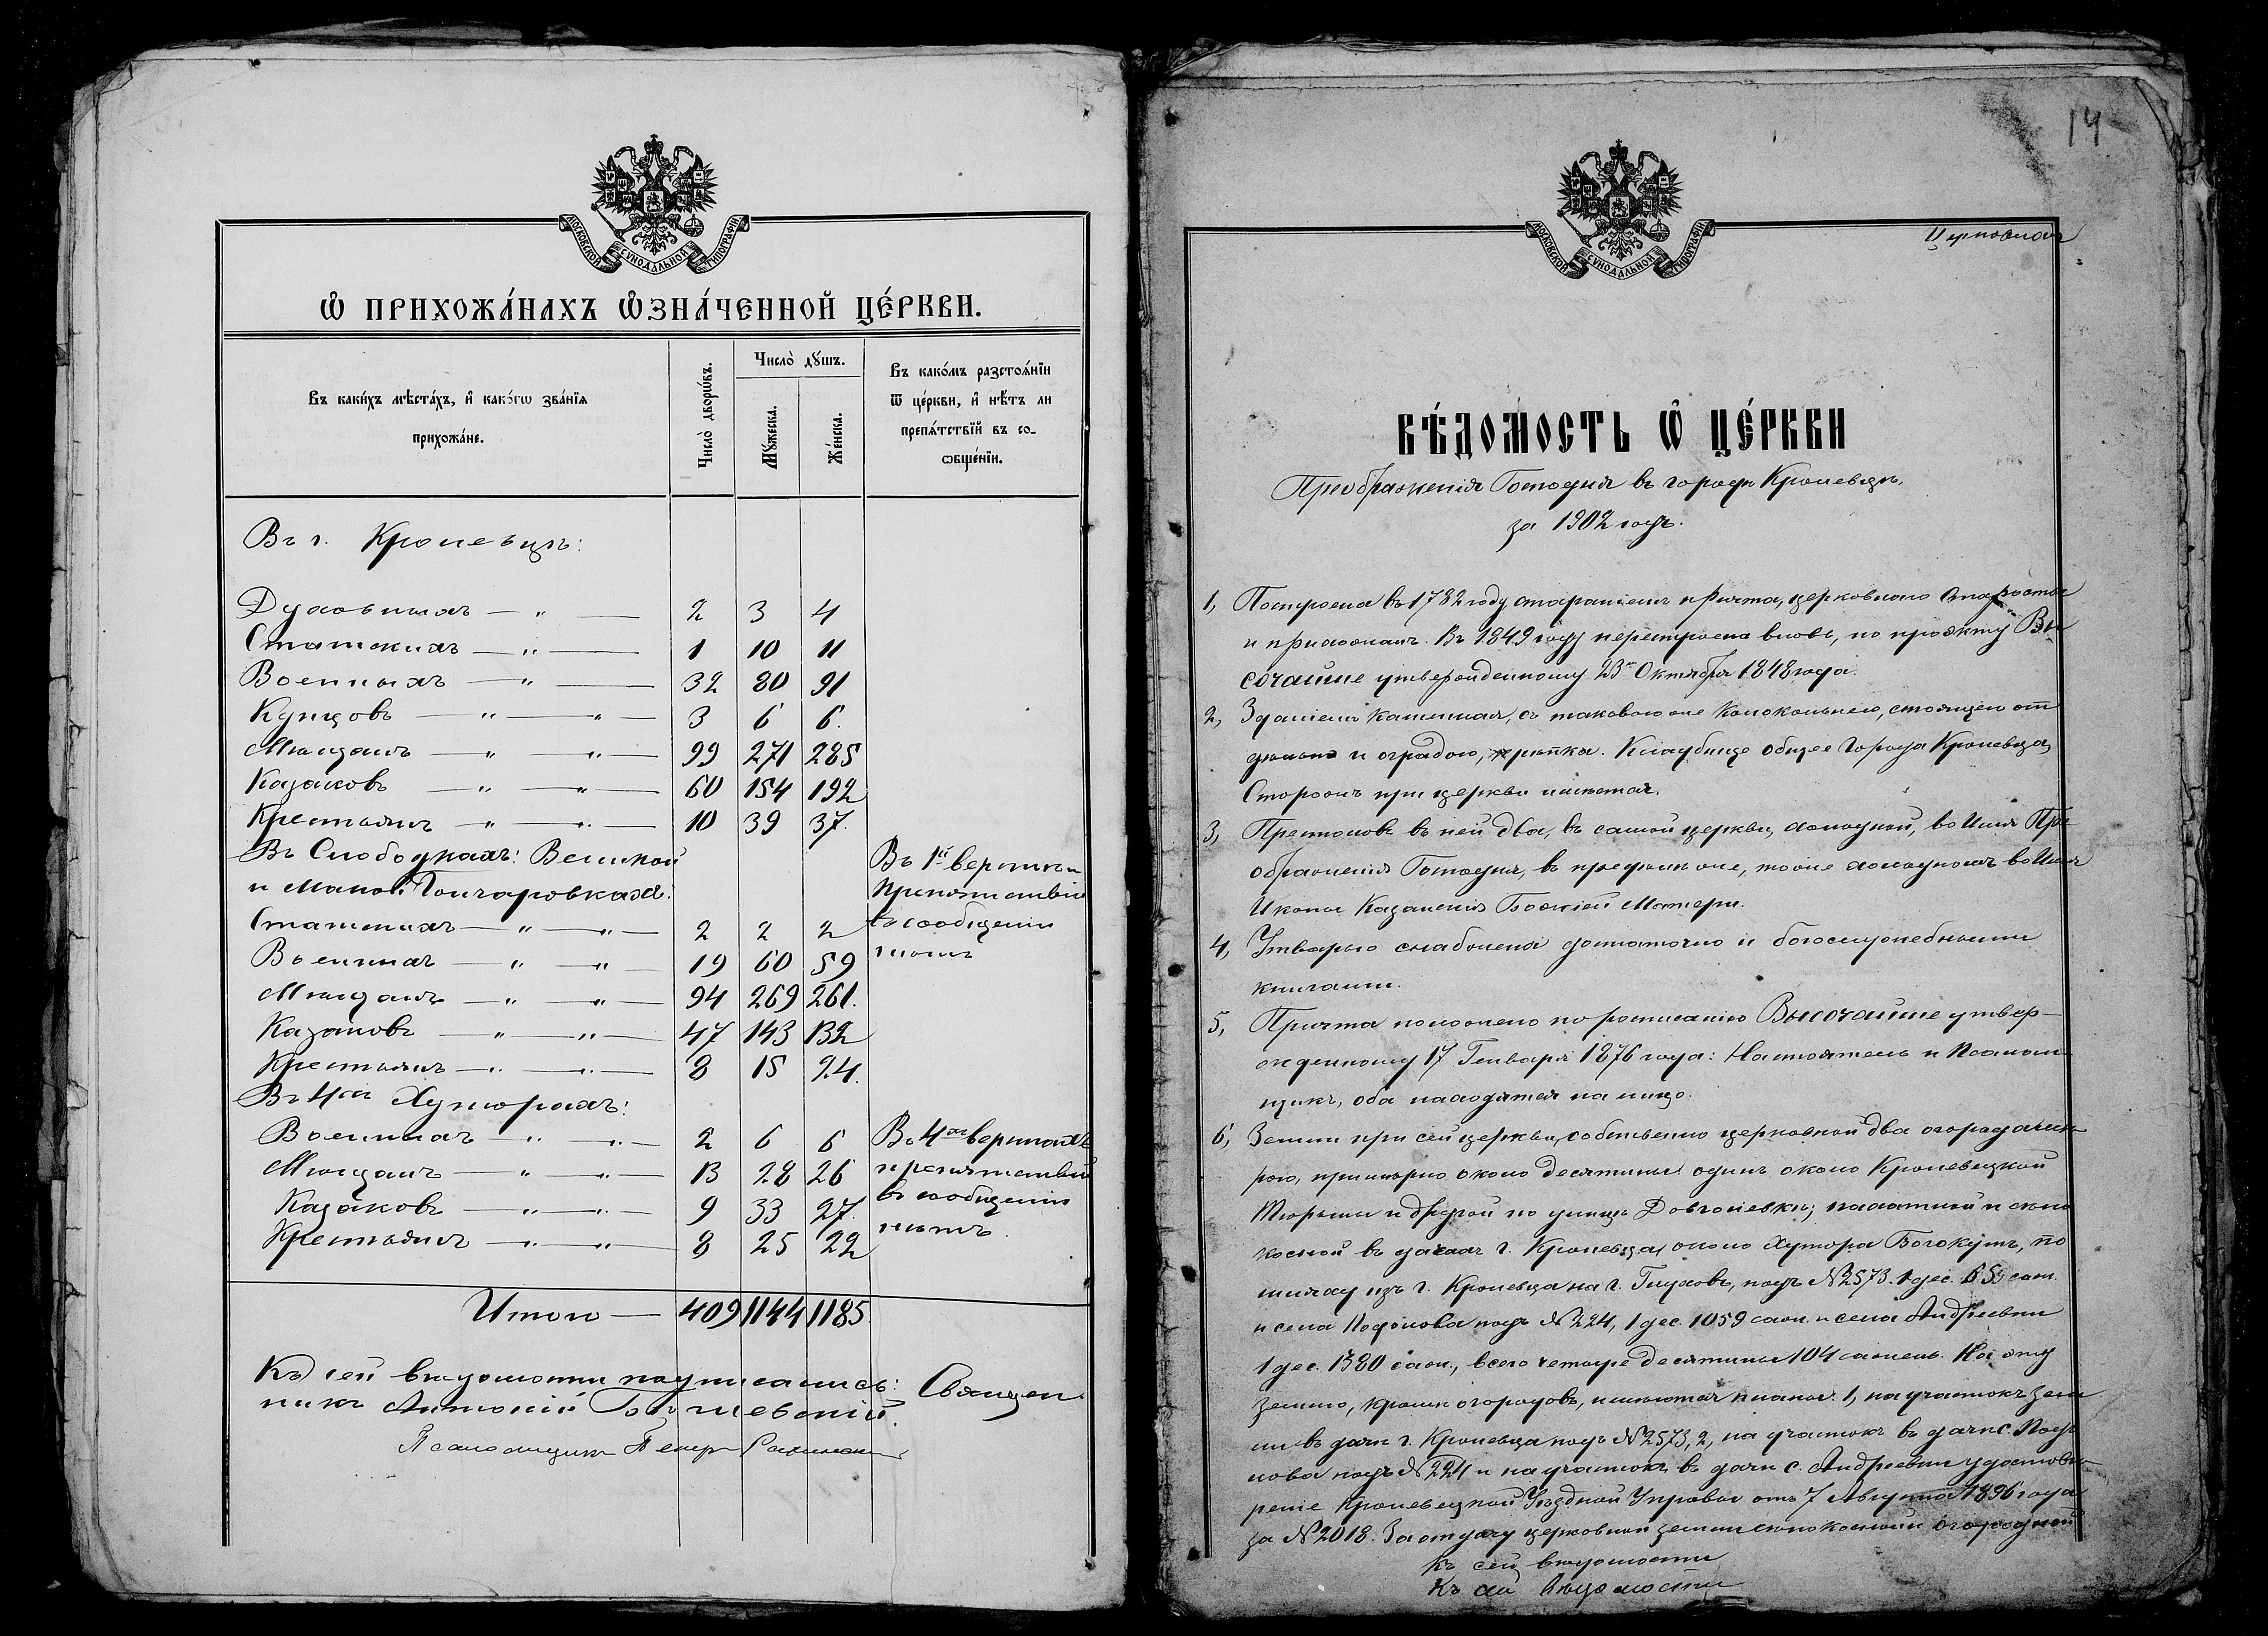 МОСКОВСКОЙ СѴНОДАЛЬНОЙ ТИПОГРАФІИ
Ѽ ПРИХОЖА́НАХЪ Ѡ҆ЗНА́ЧЕННОЙ ЦЕ́РКВИ.
Въ каки́хъ мѣста́хъ, и҆ како́гѡ зва́нїѧ прихожа́не.
Число̀ дворѡ́въ.
Число̀ дꙋ́шъ.
Мꙋ́жеска.
Же́нска.
Въ како́мъ разстоѧ́нїи ѿ це́ркви, и҆ нѣ́тъ ли препѧ́тствїй въ соѡбще́нїи.
Въ г. Кролевцѣ:
Духовныхъ — " — 2 3 4
Статскихъ — " — 1 10 11
Военныхъ — " — 32 80 91
Купцовъ — " — " — 3 6 6.
Мѣщанъ — " — " — 99 271 285
Казаковъ — " — " — 60 154 192
Крестьянъ — " — " — 10 39 37.
Въ Слободкахъ: Великой
и Малой Гончаровкахъ:
Въ 1й верстѣ
препятствія
въ сообщеніи
нѣтъ
Статскихъ — " — " — 2 2 2
Военныхъ — " — " — 19 60 59
Мѣщанъ — " — " — 94 269 261.
Казаковъ — " — " — 47 143 132
Крестьянъ — " — " — 8 15 24.
Въ 4хъ Хуторахъ:
Военныхъ — " — " — 2 6 6
Мѣщанъ — " — " — 13 28 26
Казаковъ — " — " — 9 33 27.
Крестьянъ — " — " — 8 25 22
Въ 4хъ верстахъ
препятствій
въ сообщеніи
нѣтъ.
Итого — 409 1144 1185.
Къ сей вѣдомости подписались: Священ-
никъ Антоній
Псаломщикъ Петръ
14
МОСКОВСКОЙ СѴНОДАЛЬНОЙ ТИПОГРАФІИ
ВѢ́ДОМОСТЬ Ѽ ЦЕ́РКВИ
Преображенія Господня въ городѣ Кролевцѣ,
за 1902 годъ.
1, Построена въ 1782 году стараніемъ причта, церковнаго старосты
и прихожанъ. Въ 1849 году перестроена вновь, по проэкту Вы-
сочайше утвержденному 23го Октября 1848 года.
2, Зданіемъ каменная, съ таковою же колокольнею, стоящею от-
дѣльно и оградою, крѣпка. Кладбище общее города Кролевца,
Сторожъ при церкви имѣется.
3, Престоловъ въ ней два, въ самой церкви, холодной, во Имя Пре-
ображенія Господня, въ предѣлѣ же, тоже холодномъ во Имя
Иконы Казанскія Божіей Матери.
4, Утварью снабжена достаточно и богослужебными
книгами.
5, Причта положено по росписанію Высочайше утвер-
жденному 17 Генваря 1876 года: Настоятель и Псалом-
щикъ, оба находятся на лицо.
6, Земли при сей церкви, собственно церковной два огорода мѣ-
рою, примѣрно около десятины одинъ около Кролевецкой
Тюрьмы и другой по улицѣ Довголевкѣ; пахатной и сѣно-
косной въ дачахъ г. Кролевца, около Хутора Богокутъ, по
шляху изъ г. Кролевца на г. Глуховъ, подъ №2573. 1 дес. 65 саж.
и села Подолова подъ №224, 1 дес. 1059 саж. и села Андреевки
1 дес. 1380 саж., всего четыре десятины 104 сажень. На эту
землю, кромѣ огородовъ, имѣются планы: 1, на участокъ зем-
ли въ дачѣ г. Кролевца подъ №2573, 2, на участокъ въ дачѣ с. Подо-
лова подъ №224 и на участокъ въ дачи с. Андреевки удостовѣ-
реніе Кролевецкой Уѣздной Управы отъ 7 Августа 1896 года
за №2018. За отдачу церковной земли сѣнокосной и огородной
Къ сей вѣдомости
Къ сей вѣдомости